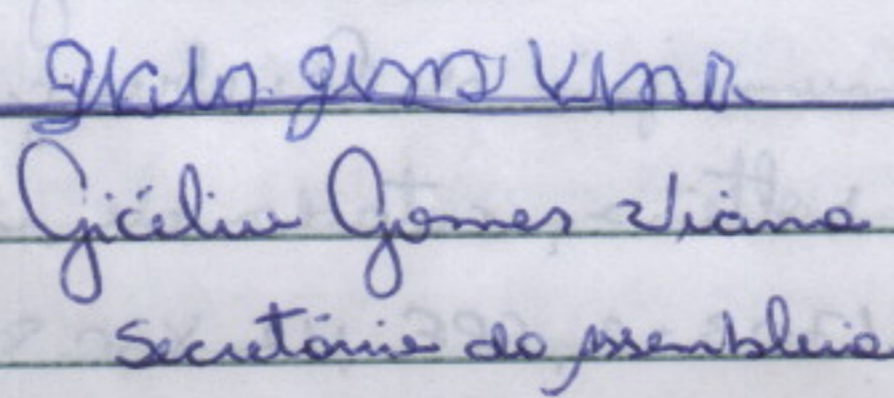 Gomes Viana
Gicélia Gomes Viana
Secretária da Assembleia